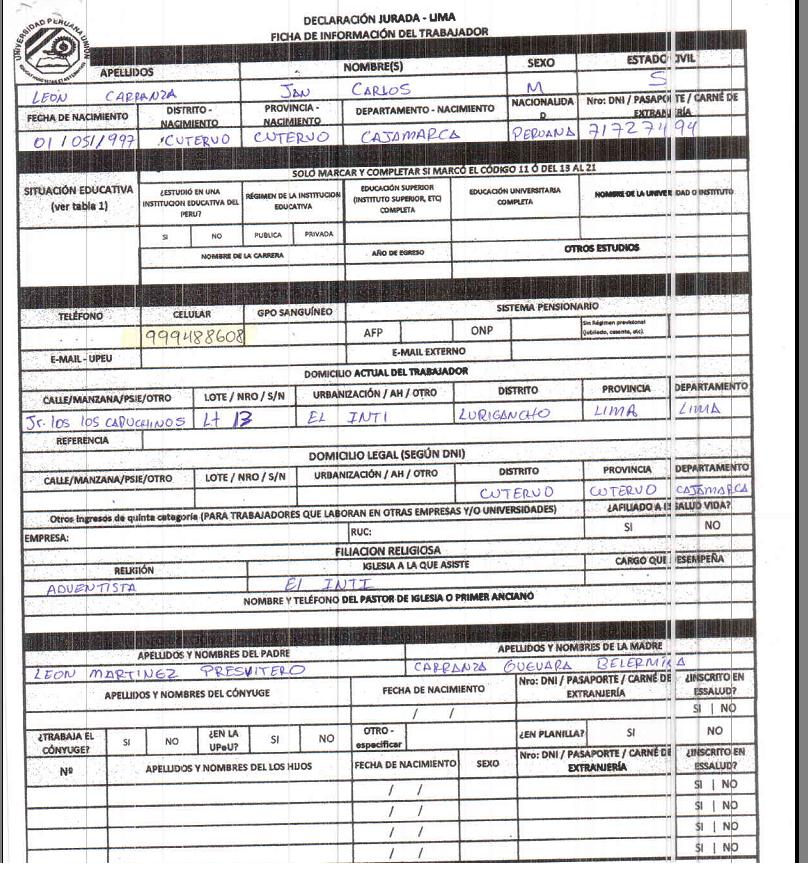 UNIVERSIDAD PERUANA UNION
DECLARACIÓN JURADA - LIMA
FICHA DE INFORMACIÓN DEL TRABAJADOR
APELLIDOS NOMBRE(S) SEXO ESTADO CIVIL
LEON CARRANZA JAN CARLOS M S
FECHA DE NACIMIENTO DISTRITO - NACIMIENTO PROVINCIA - NACIMIENTO DEPARTAMENTO - NACIMIENTO NACIONALIDAD Nro: DNI / PASAPORTE / CARNÉ DE EXTRANJERÍA
01/05/1997 CUTERVO CUTERVO CAJAMARCA PERUANA 71727494
SOLO MARCAR Y COMPLETAR SI MARCÓ EL CÓDIGO 11 Ó DEL 13 AL 21
SITUACIÓN EDUCATIVA (ver tabla 1) ¿ESTUDIÓ EN UNA INSTITUCION EDUCATIVA DEL PERU? RÉGIMEN DE LA INSTITUCION EDUCATIVA EDUCACIÓN SUPERIOR (INSTITUTO SUPERIOR, ETC) COMPLETA EDUCACIÓN UNIVERSITARIA COMPLETA NOMBRE DE LA UNIVERSIDAD O INSTITUTO
SI NO PUBLICA PRIVADA
NOMBRE DE LA CARRERA AÑO DE EGRESO OTROS ESTUDIOS
TELÉFONO CELULAR GPO SANGUÍNEO SISTEMA PENSIONARIO
999488608 AFP ONP Sin Régimen previsional (jubilado, cesante, etc).
E-MAIL - UPEU E-MAIL EXTERNO
DOMICILIO ACTUAL DEL TRABAJADOR
CALLE/MANZANA/PSJE/OTRO LOTE / NRO / S/N URBANIZACIÓN / AH / OTRO DISTRITO PROVINCIA DEPARTAMENTO
Jr. los los CAPUCHINOS Lt 13 EL INTI LURIGANCHO LIMA LIMA
REFERENCIA
DOMICILIO LEGAL (SEGÚN DNI)
CALLE/MANZANA/PSJE/OTRO LOTE / NRO / S/N URBANIZACIÓN / AH / OTRO DISTRITO PROVINCIA DEPARTAMENTO
CUTERVO CUTERVO CAJAMARCA
Otros ingresos de quinta categoría (PARA TRABAJADORES QUE LABORAN EN OTRAS EMPRESAS Y/O UNIVERSIDADES) ¿AFILIADO A ESSALUD VIDA?
EMPRESA: RUC: SI NO
FILIACION RELIGIOSA
RELIGIÓN IGLESIA A LA QUE ASISTE CARGO QUE DESEMPEÑA
ADVENTISTA El INTI
NOMBRE Y TELÉFONO DEL PASTOR DE IGLESIA O PRIMER ANCIANO
APELLIDOS Y NOMBRES DEL PADRE APELLIDOS Y NOMBRES DE LA MADRE
LEON MARTINEZ PRESVITERO CARRANZA GUEVARA BELERMINA
APELLIDOS Y NOMBRES DEL CÓNYUGE FECHA DE NACIMIENTO Nro: DNI / PASAPORTE / CARNÉ DE EXTRANJERÍA ¿INSCRITO EN ESSALUD?
/ / SI | NO
¿TRABAJA EL CÓNYUGE? SI NO ¿EN LA UPeU? SI NO OTRO - especificar ¿EN PLANILLA? SI NO
Nº APELLIDOS Y NOMBRES DEL LOS HIJOS FECHA DE NACIMIENTO SEXO Nro: DNI / PASAPORTE / CARNÉ DE EXTRANJERÍA ¿INSCRITO EN ESSALUD?
/ / SI | NO
/ / SI | NO
/ / SI | NO
/ / SI | NO